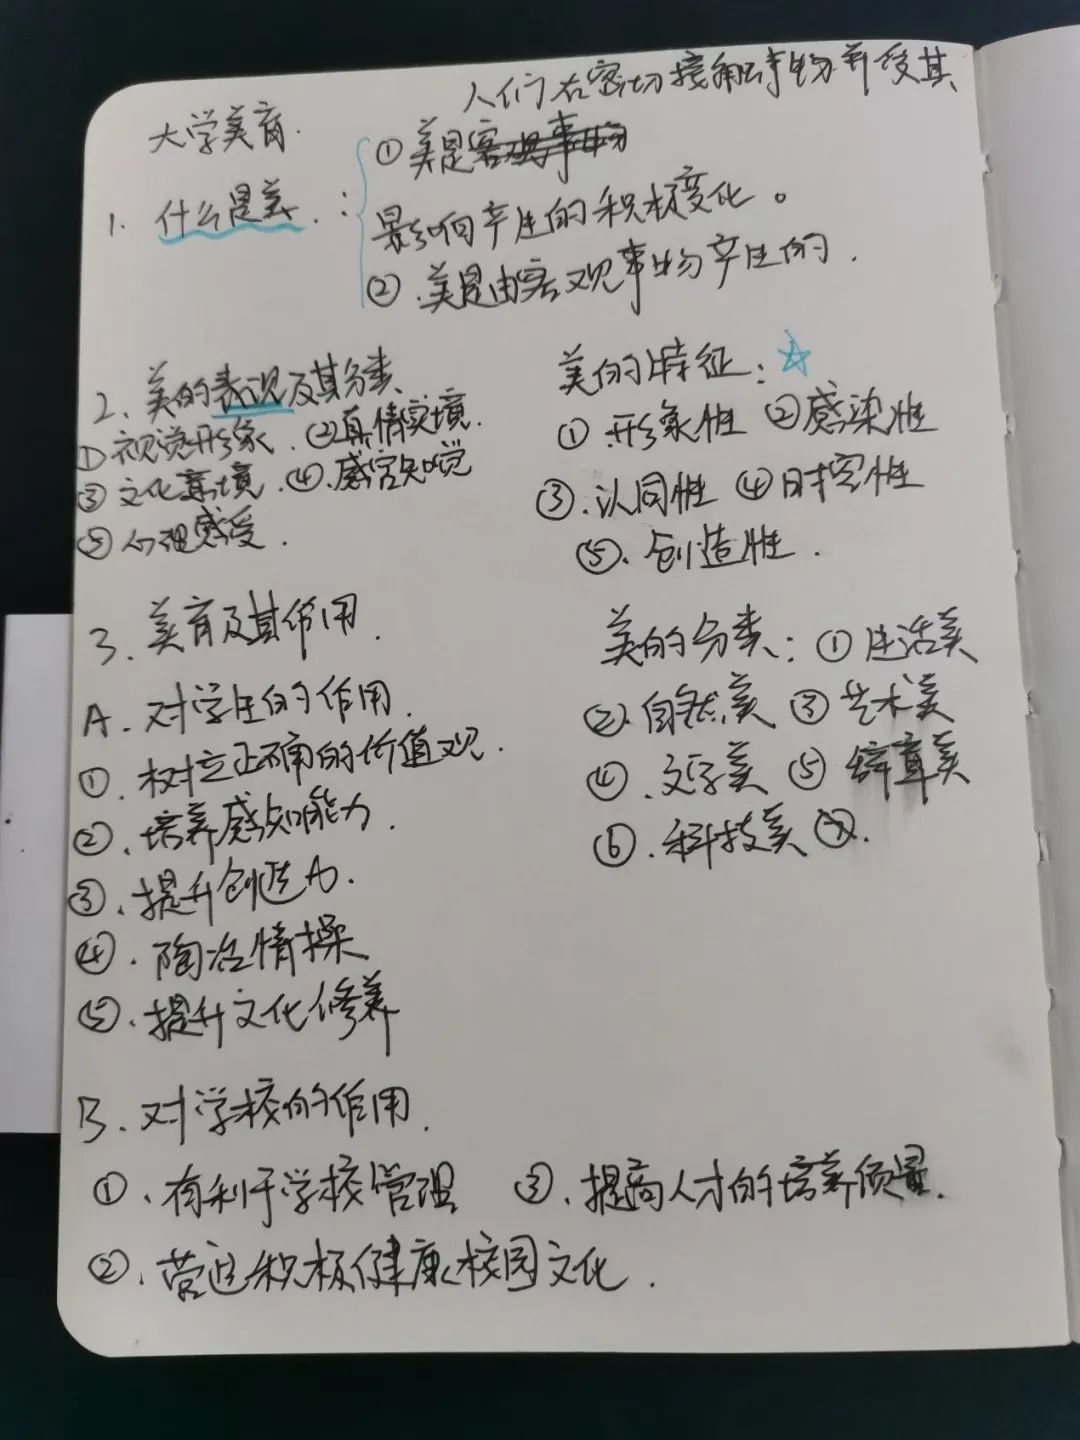 大学美育.
人们在密切接触事物并受其
1. 什么是美.:
① 美是客观事物
影响产生的积极变化。
② .美是由客观事物产生的.
2、美的表现及其分类、
①视觉形象.②真情实境.
③ 文化意境.④.感官知觉
⑤ 心理感受.
美的特征:☆
① 形象性 ②感染性
③.认同性 ④时空性
⑤.创造性.
3、美育及其作用.
A. 对学生的作用.
①.树立正确的价值观.
②、培养感知能力.
③、提升创造力.
④.陶冶情操
⑤.提升文化修养
美的分类:① 生活美
②.自然美 ③ 艺术美
④.文字美 ⑤ 辞章美
⑥.科技美 ⑦.
B.对学校的作用.
①、有利于学校管理 ③.提高人才的培养质量.
②.营造积极健康校园文化.